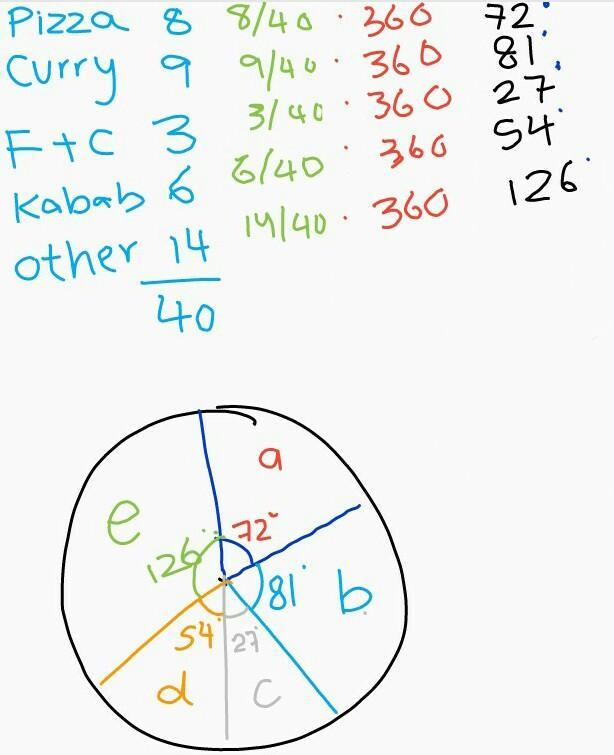 Pizza 8 8/40 · 360 72°
Curry 9 9/40 · 360 81°
F+C 3 3/40 · 360 27°
Kabab 6 6/40 · 360 54°
other 14 14/40 · 360 126°
40
a
e
72°
126°
81° b
54° 27°
d c